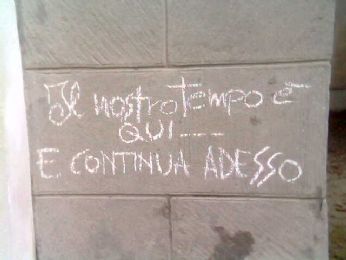 Il nostro tempo è
QUI....
E CONTINUA ADESSO